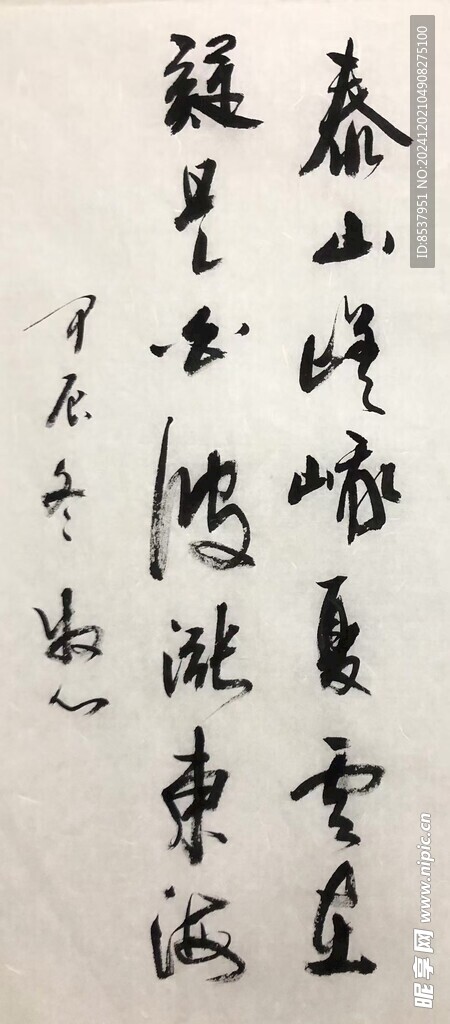 泰山嵯峨夏雲在
疑是白波漲東海
甲辰冬
ID:8537951 NO:20241202104908275100
昵享网 www.nipic.cn